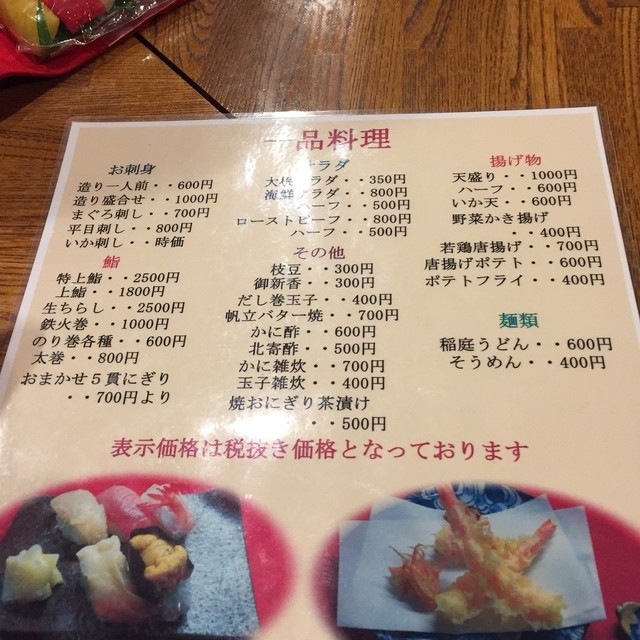 一品料理
お刺身
造り一人前・・600円
造り盛合せ・・1000円
まぐろ刺し・・700円
平目刺し・・800円
いか刺し・・時価
鮨
特上鮨・・2500円
上鮨・・1800円
生ちらし・・2500円
鉄火巻・・1000円
のり巻各種・・600円
太巻・・800円
おまかせ5貫にぎり
・・700円より
サラダ
大根サラダ・・350円
海鮮サラダ・・800円
ハーフ・・500円
ローストビーフ・・800円
ハーフ・・500円
その他
枝豆・・300円
御新香・・300円
だし巻玉子・・400円
帆立バター焼・・700円
かに酢・・600円
北寄酢・・500円
かに雑炊・・700円
玉子雑炊・・400円
焼おにぎり茶漬け
・・500円
揚げ物
天盛り・・1000円
ハーフ・・600円
いか天・・600円
野菜かき揚げ
・・400円
若鶏唐揚げ・・700円
唐揚げポテト・・600円
ポテトフライ・・400円
麺類
稲庭うどん・・600円
そうめん・・400円
表示価格は税抜き価格となっております